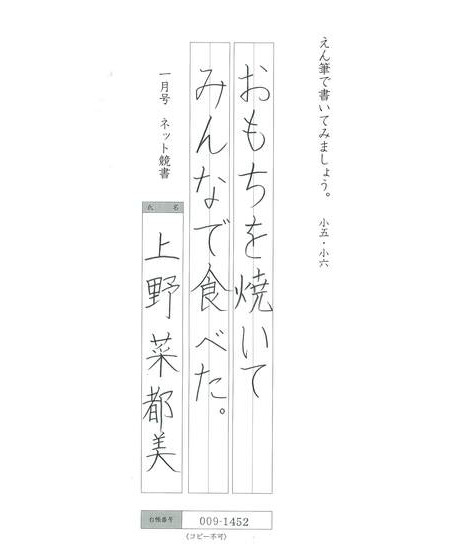 えん筆で書いてみましょう。 小五・小六
おもちを焼いて
みんなで食べた。
一月号 ネット競書
氏名
上野菜都美
台帳番号 009-1452
(コピー不可)